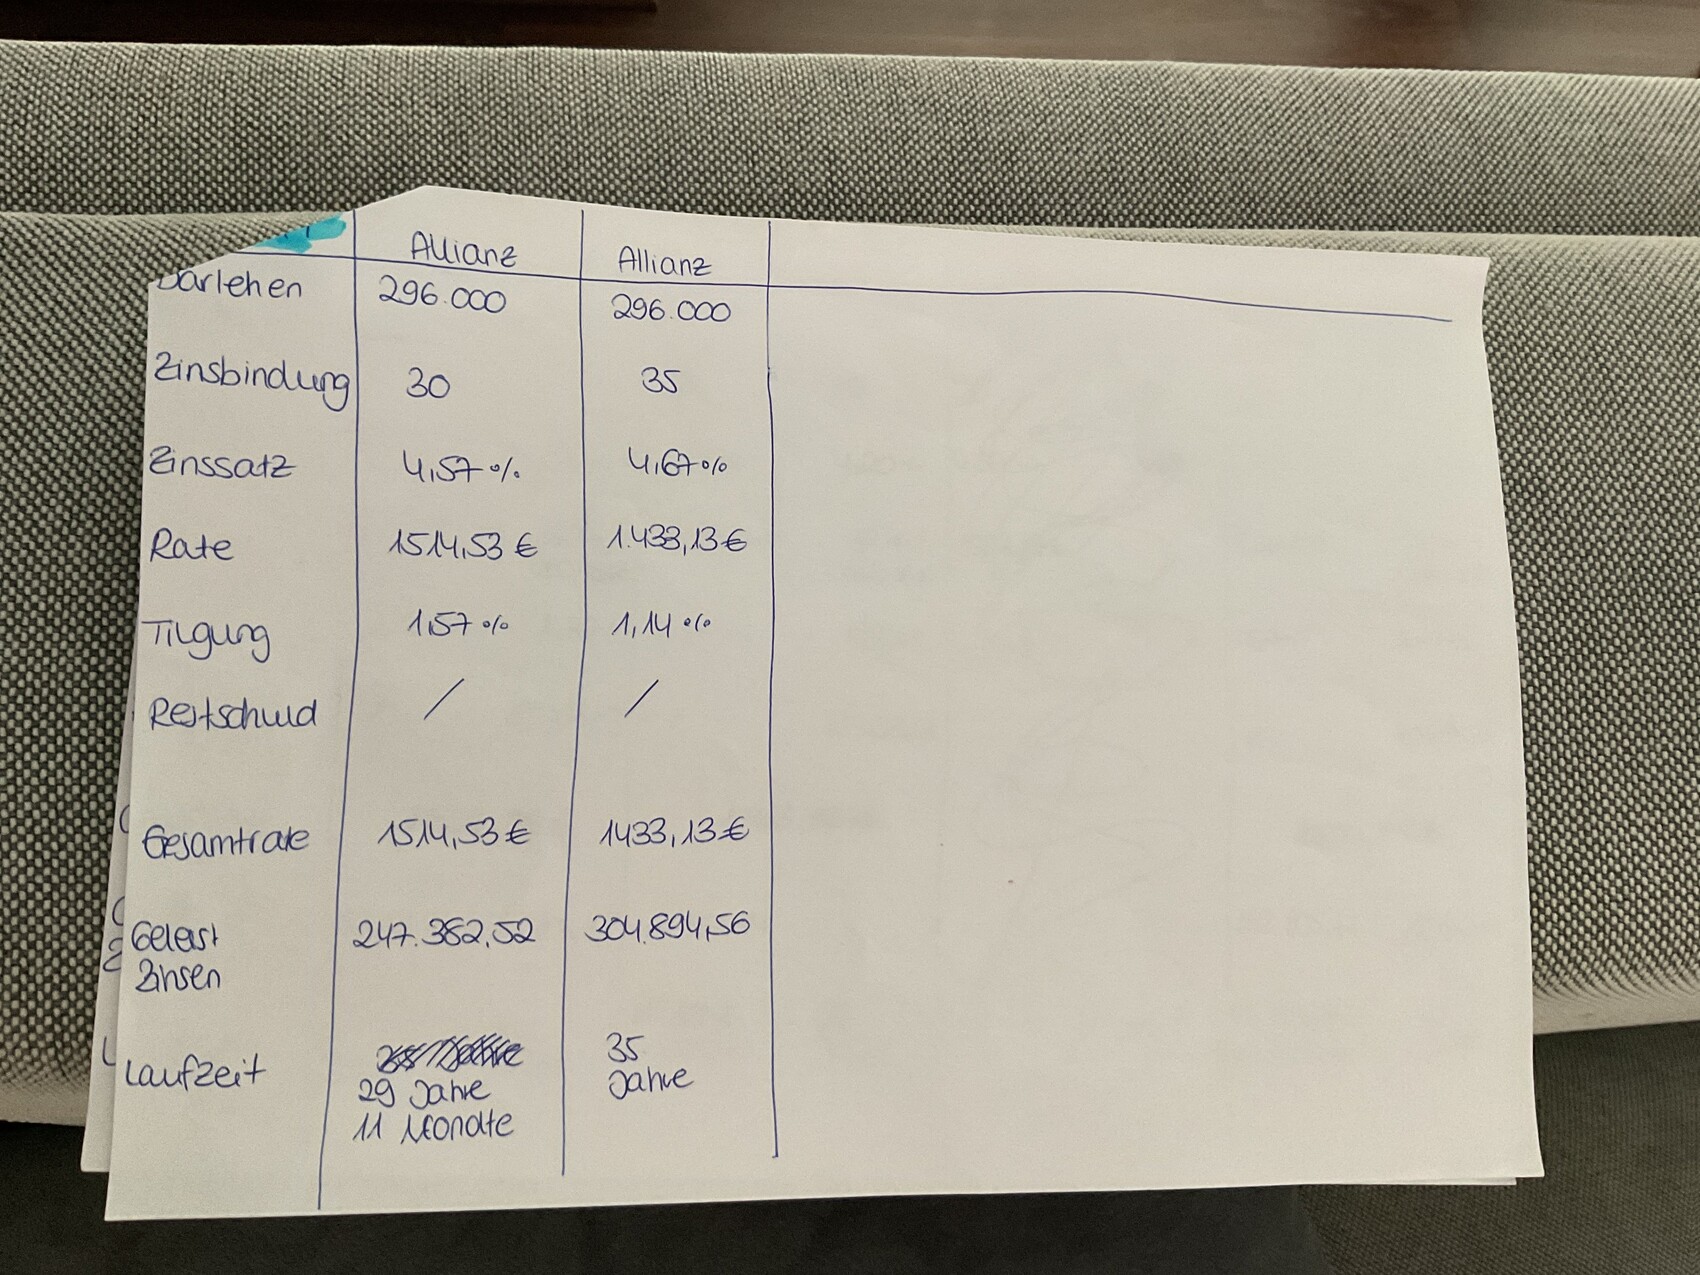 Allianz Allianz
Darlehen 296.000 296.000
Zinsbindung 30 35
Zinssatz 4,57% 4,67%
Rate 1514,53 € 1.433,13 €
Tilgung 1,57% 1,14%
Restschuld / /
Gesamtrate 1514,53 € 1433,13 €
Geleist 247.382,52 304.894,56
Zinsen
Laufzeit 35
29 Jahre Jahre
11 Monate